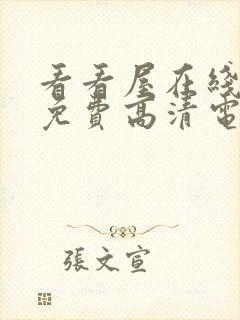 看看屋在线
免費高清電
張文宣